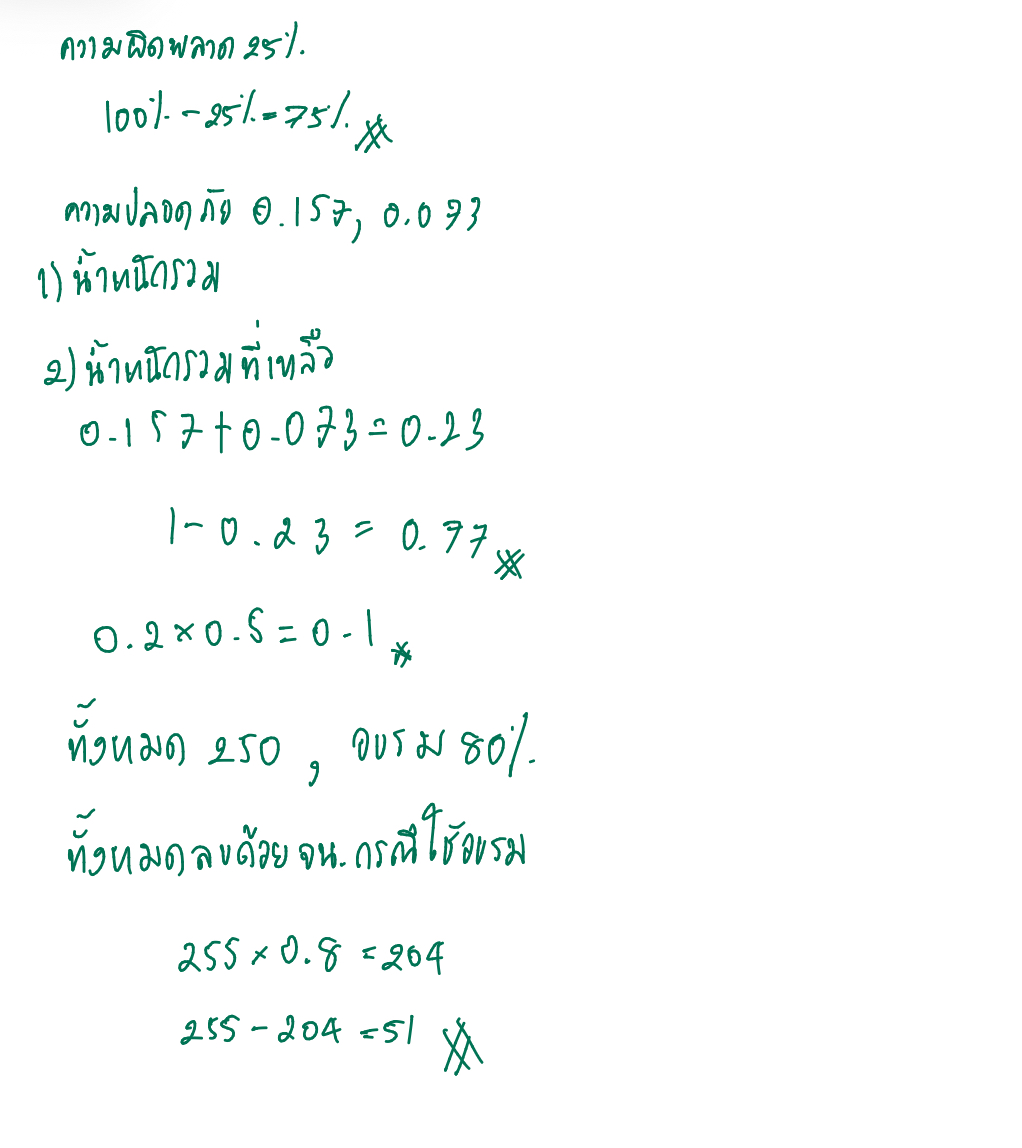 ความผิดพลาด 25%.
100% - 25% = 75%.
ความปลอดภัย 0.157, 0.073
1) น้ำหนักรวม
2) น้ำหนักรวมที่เหลือ
0.157 + 0.073 = 0.23
1 - 0.23 = 0.77
0.2 × 0.5 = 0.1
ทั้งหมด 250 , อบรม 80%.
ทั้งหมดลบด้วย จน. กรณีใช้อบรม
255 × 0.8 = 204
255 - 204 = 51